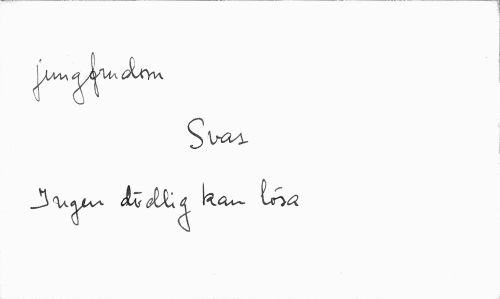 jungfrudom
Svar
Ingen dödlig kan lösa